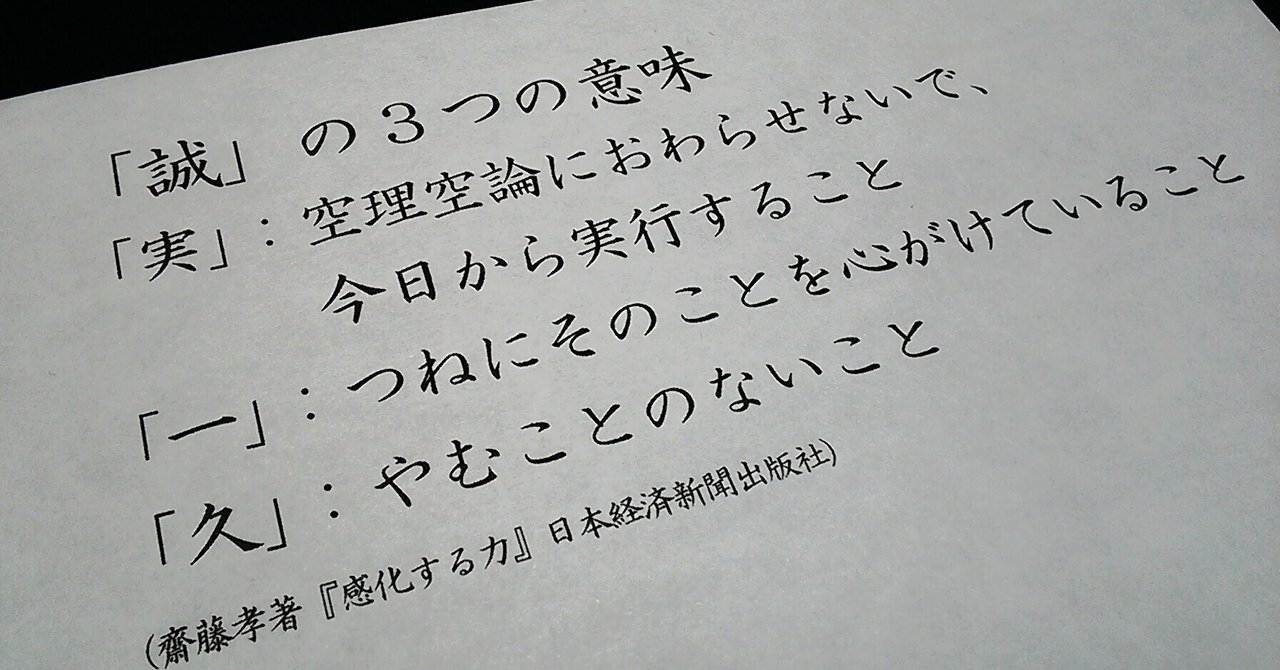 「誠」の３つの意味
「実」：空理空論におわらせないで、
今日から実行すること
「一」：つねにそのことを心がけていること
「久」：やむことのないこと
(齋藤孝著『感化する力』日本経済新聞出版社)